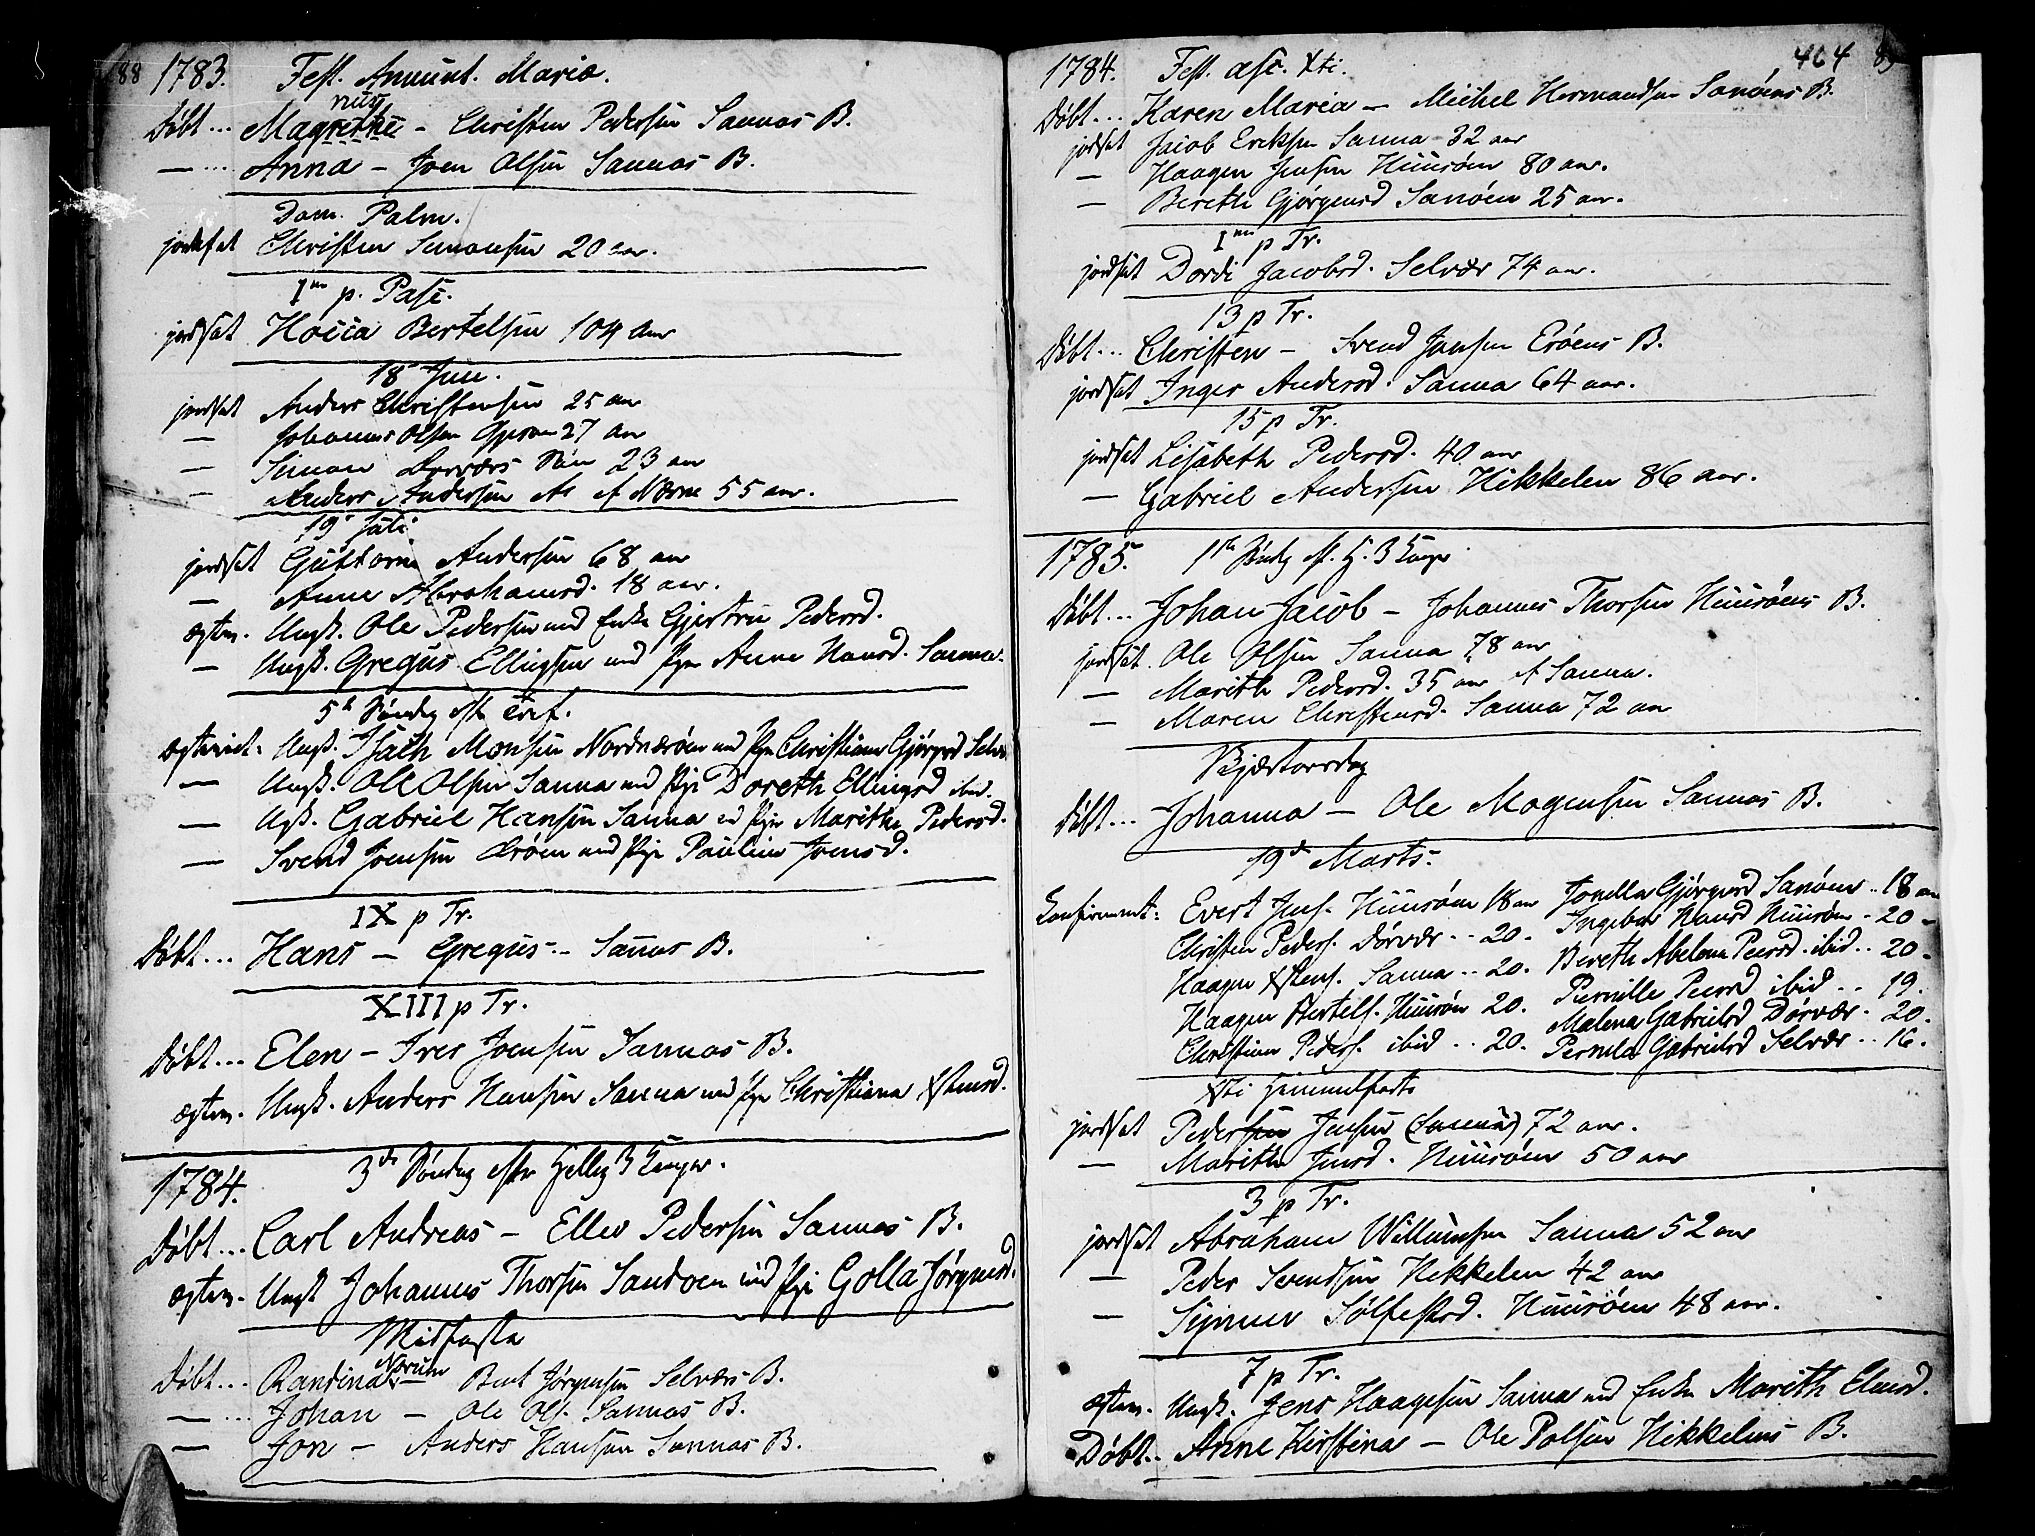 88 1783. Fest. Anunt. Mariæ.
nus
Døbt... Magrethe - Christen Pedersen Sannas B.
— ... Anna - Joen Olsen Sannas B.
Dom. Palm.
jordsat Christen Simonsen 20 aar.
1m p. Pasc.
jordsat Hocca Bertelsen 104 aar
18 Jun.
jordsat Anders Christensen 25 aar
— Johannes Olsen 27 aar
— Simon Søn 23 aar
— Anders Andersen af Nærøe 55 aar.
19 Juli
jordsat Guttorm Andersen 68 aar
— Anne Abrahamsd. 18 aar.
ægtev. Ungk. Ole Pedersen med Enke Gjertru Pedersd.
— Ungk. Gregus Ellingsen med Pige Anne Hansd. Sanna.
5te Søndag efter Tref.
ægteviet. Ungk. Isach Monsen Nordnærøen med Pige Christiane Gjörgsd Selv.
— Ungk. Ole Olsen Sanna med Pige Doreth Ellingsd ibid.
— Ungk. Gabriel Hansen Sanna md Pige Marithe Pedersd.
— Svend Joensen Erøen med Pige Pauline Joensd.
IX p Tr.
Døbt... Hans — Gregus - Sannas B.
XIII p Tr.
Døbt... Elen - Iver Joensen Sannas B.
ægtev. Ungk. Anders Hansen Sanna med Pige Christiana Xstensd.
1784. 3de Søndag efter Hellig 3 Konger.
Døbt... Carl Andreas - Ellev Pedersen Sannas B.
ægtev. Ungk Johannes Thorsen Sandøen med Pige Golla Jørgensd.
Midfasta
Norum
Døbt... Randina — Bent Jørgensen Selværs B.
— ... Johan — Ole Ols. Sannas B.
— Jon — Anders Hansen Sannas B.
464 89
1784. Fest. asc. Xti.
Døbt... Karen Maria - Michel Hermandsen Sanøens B.
jordsat Jacob Eriksen Sanna 32 aar
— Haagen Jensen Huusøen 80 aar.
— Bereth Gjørgensd Sanøen 25 aar.
1m p Tr.
jordsat Dordi Jacobsd. Selvær 74 aar.
13 p Tr.
Døbt... Christen - Svend Joensen Erøens B.
jordsat Inger Andersd. Sanna 64 aar.
15 p Tr.
jordsat Lisabeth Pedersd. 40 aar
— Gabriel Andersen Hikkelen 86 aar.
1785. 1te Søndg eft. H. 3 Konger
Døbt... Johan Jacob - Johannes Thorsen Huusøens B.
jordsat. Ole Olsen Sanna 78 aar
— Marith Pedersd. 35 aar af Sanna.
— Maren Christensd. Sanna 72 aar
Skjærtorsdag
Døbt... Johanna — Ole Mogensen Sannas B.
19de Marts.
Confirmert: Evert Jens. Huusøen 18 aar Jonella Gjørgensd Sanøen .. 18 aar
Christen Peders. Dørvær .. 20. Ingebor Hansd Huusøen - 20 -
Haagen Xstens. Sanna .. 20. Bereth Abelona Peersd. ibid .. 20 -
Haagen Bertels. Huusøn 20. Pernille Peersd ibid .. 19.
Christian Peders. ibid .. 20. Malena Gabrielsd Dørvær . 20.
Pernila Gabrielsd Selvær .. 16.
Xti Himmelfarts
jordsat Pedersen Jensen (Sanna) 72 aar.
— Marith Jensd. Huusøen 50 aar
3 p Tr.
jordsat Abraham Willumsen Sanna 52 aar
— Peder Svendsen Hikkelen 42 aar
— Synner Sølfestsd. Huusøen 48 aar.
7 p Tr.
ægtev. Ungk. Jens Haagesen Sanna md Enke Marith Elensd.
Døbt.. Anne Kirstina — Ole Polsen Hikkelens B.